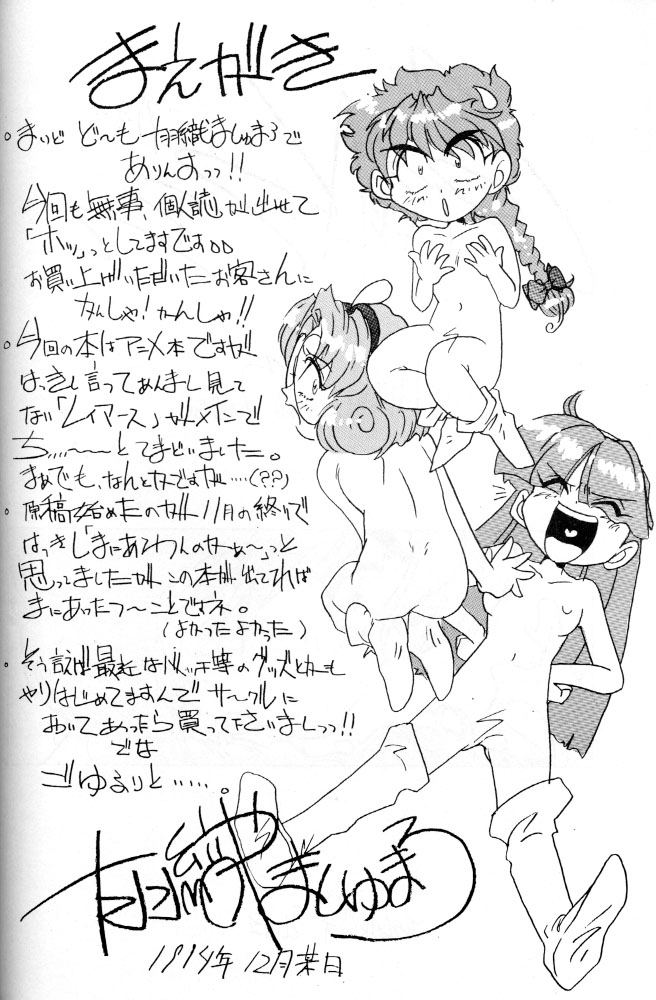 まえがき
。まいど ど〜も 有羽織ましゅまろで
ありんすっっ!!
今回も無事、個人誌が出せて
「ホッ」っとしてますです。。
お買い上げいただいたお客さんに
かんしゃ!かんしゃ!!
。今回の本はアニメ本ですが
はっきし言ってあんまし見て
ない「レイアース」がメインで
ち....〜〜とてまどいました。
まぁでも、なんとかですが....(??)
。原稿始めたのが 11月の終りで
はっきし「まにあてわんのかぁ〜」っと
思ってましたがこの本が出てれば
まにあったつ〜ことですネ。
(よかったよかった)
。そう言えば最近はバッチ等のグッズとかも
やりはじめてますんでサークルに
おいてあったら買って下さいましっっ!!
でな
ごゆるりと.....。
ましゅまろ
1994年 12月某日